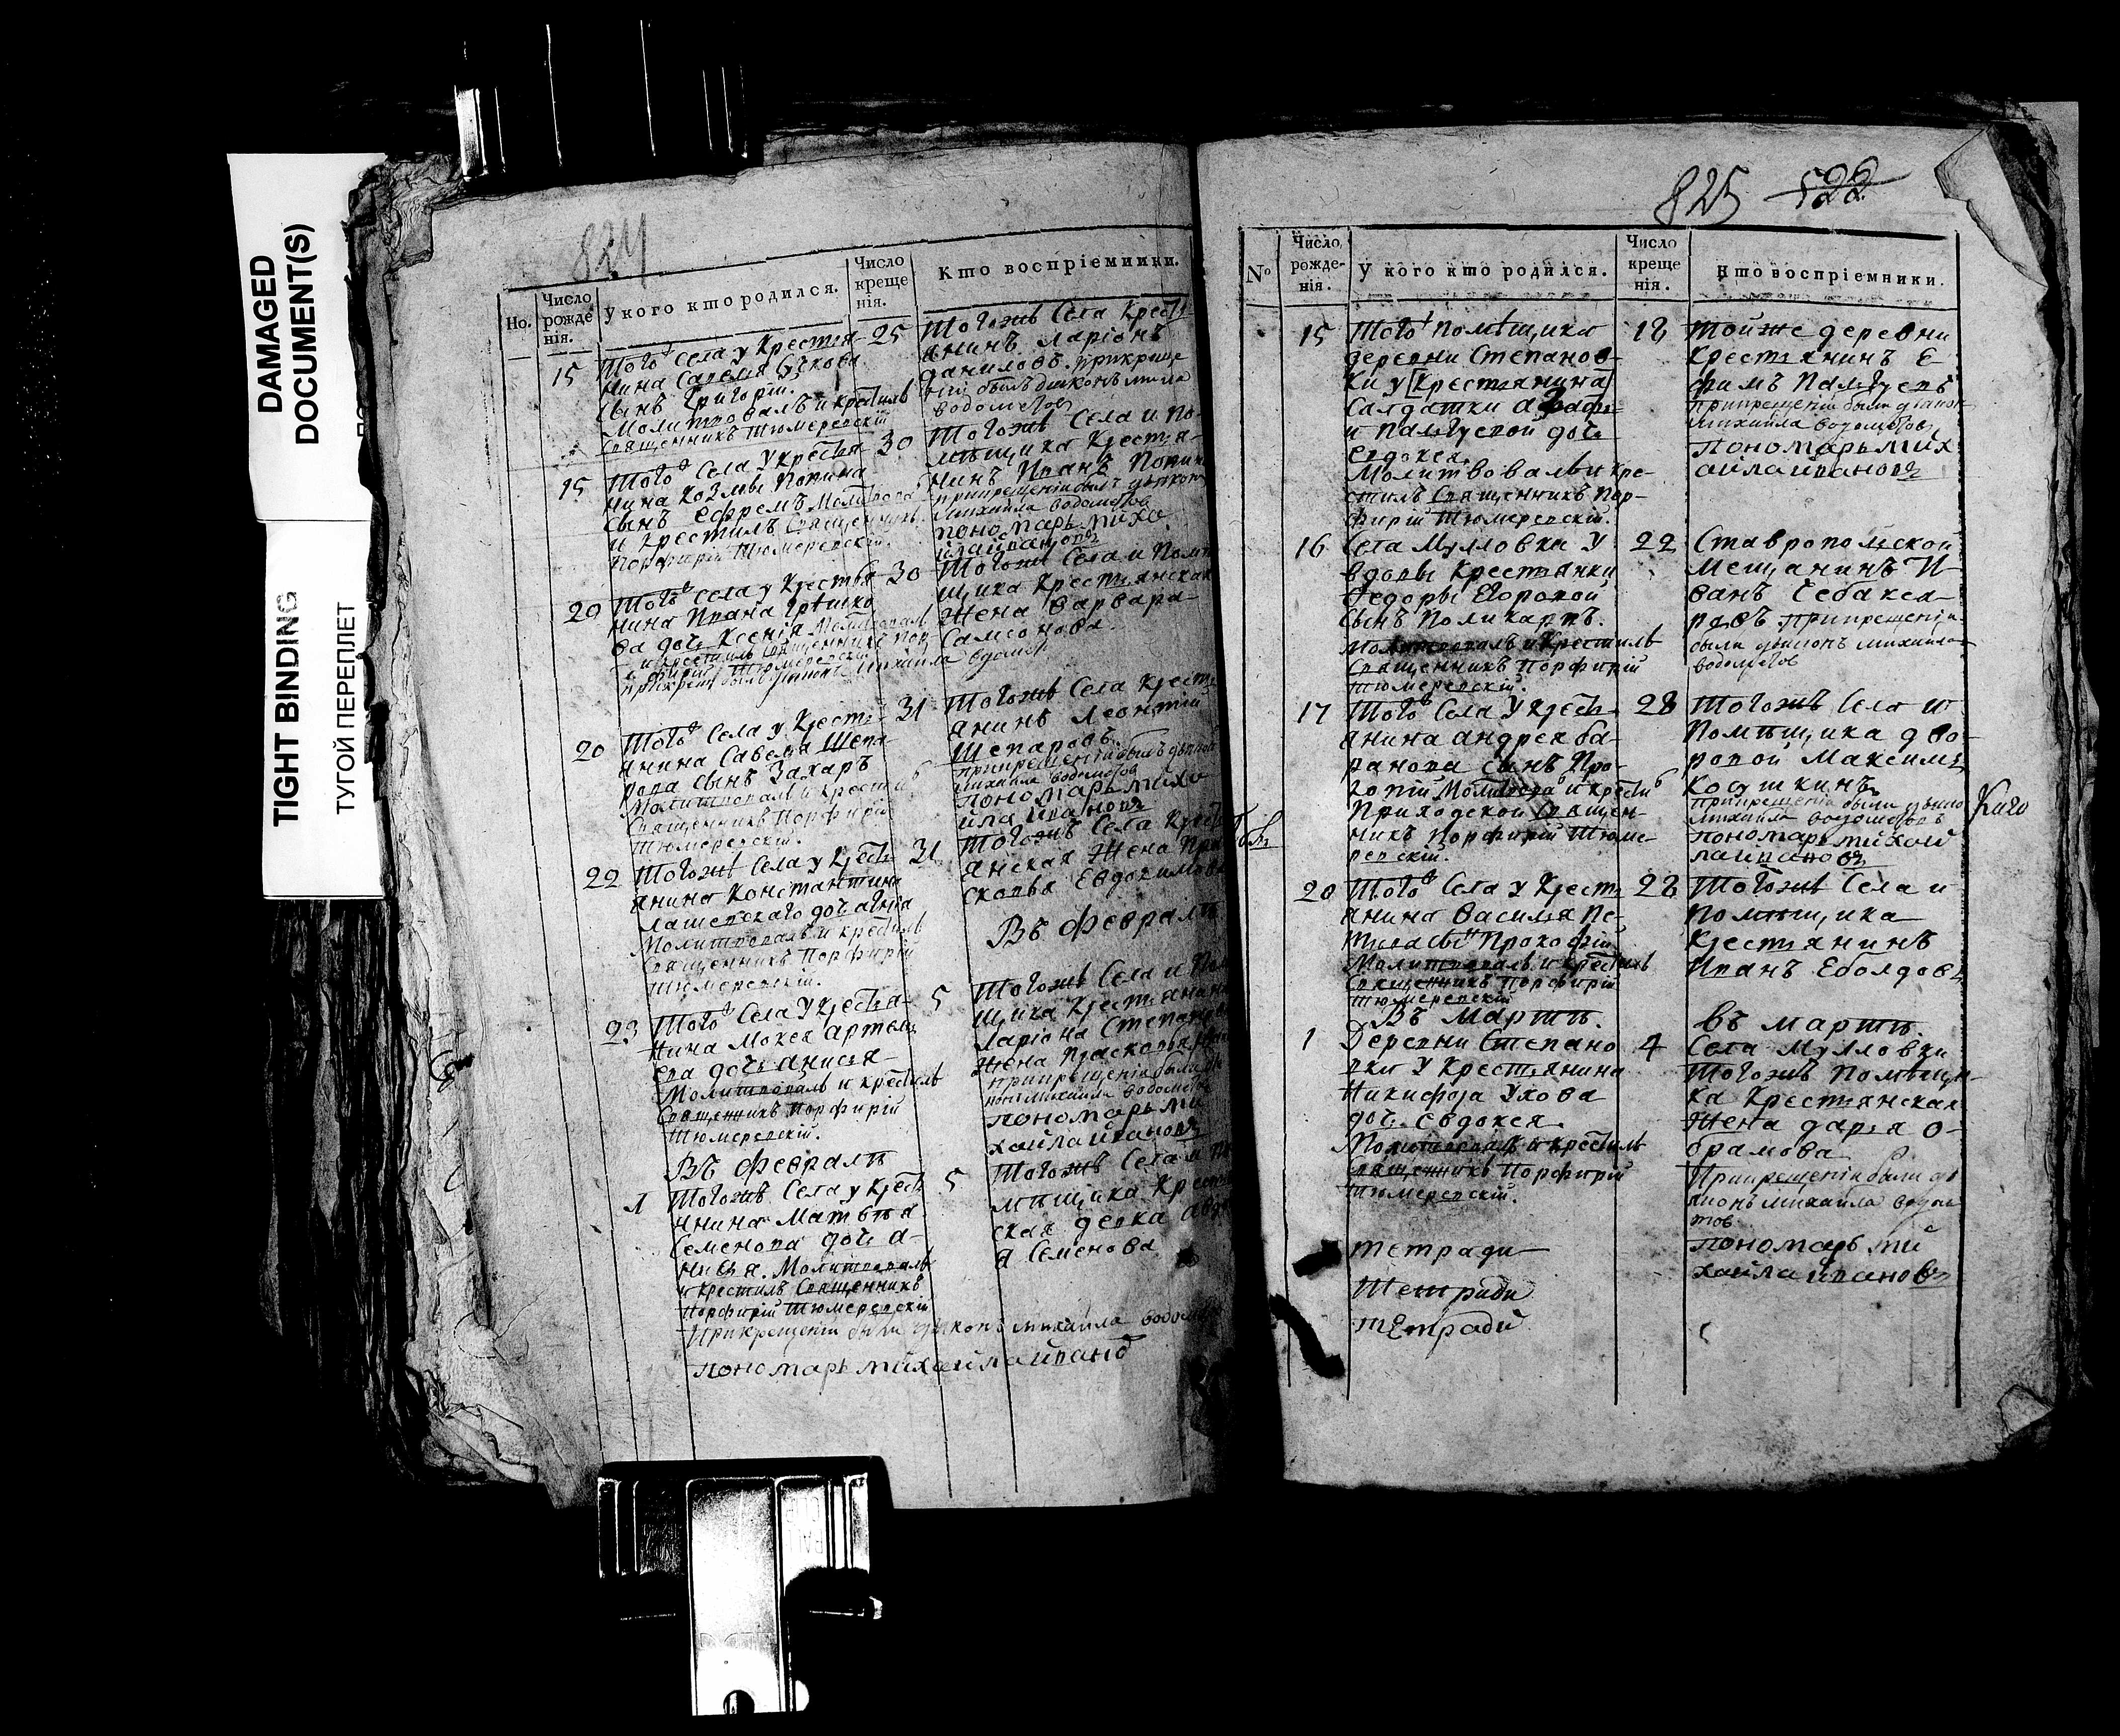 DAMAGED
DOCUMENT(S)
TIGHT BINDING
ТУГОЙ ПЕРЕПЛЕТ
824
Но.
Число рожде нія.
У кого кто родился.
Число креще нія.
Кто воспріемники.
15 Тогож Села у Крестья- 25
нина Савелия
сынъ Григорій.
Молитвовалъ и крестилъ
Священникъ Тюмеревскій
Тогожъ Села Крест
янинъ Ларіонъ
даниловъ. При креще
ніи былъ дьяконъ миха
водолетов
15 Тогож Села у Крестья- 30
нина Козмы Попина
сынъ Ефремъ Молитвова
и Крестилъ Священникъ
Порфирій Тюмеревскій.
Тогожъ Села и По-
мѣщика Крестья-
нинъ Иванъ Попин
при крещеніи былъ дьякон
Михайла водолетов
пономарь михо
йла ивановъ
20 Тогож Села у Крестья- 30
нина Ивана
ва дочь Ксенія Молитвовал
и крестилъ Священникъ Пор
фирій Тюмеревскій
Тогожъ Села и Помѣ
щика Крестьянская
Жена Варвара
Самсонова.
20 Тогож Села у Крестъ- 31
янина Савелья Шепа-
рова сынъ Захаръ
Молитвовалъ и крестил
Священникъ Порфирій
Тюмеревскій.
Тогожъ Села Крестъ
янинъ Леонтій
Шепаровъ.
при крещеніи былъ дьякон
михайла водолетов
пономарь михо
йла ивановъ
22 Тогожъ Села у Крестъ 31
янина Константина
дочь
Молитвовалъ и крестилъ
Священникъ Порфирій
Тюмеревскій.
Тогожъ Села Крест
янская Жена Пра
сковья Евдокимова
Въ Февралѣ
23 Тогож Села У Крестья- 5
нина Мокея Артемь
ева дочь Анисья
Молитвовалъ и крестилъ
Священникъ Порфирій
Тюмеревскій.
Тогожъ Села и Пом
щика Крестьянина
Ларіона Степанова
Жена Прасковья
при крещеніи были дья
конъ Михайла водолетов
пономарь ми
хайла ивановъ
Въ Февралѣ
1 Тогожъ Села у Крестъ 5
янина Матвѣя
Семенова дочь А-
нисья. Молитвовалъ
и крестилъ Священникъ
Порфирій Тюмеревскій
Тогожъ Села и По
мѣщика Крестьян
ская девка
я Семенова
При крещеніи были дьяконъ михайла водолет
пономарь михайла иванов
825 522
№
Число рожде- нія.
У кого кто родился.
Число креще нія.
Кто воспріемники.
15 Того Помѣщика 18
деревни Степанов-
ки у [Крестьянина]
Салдатки Агафи
и дочь
Евдокея.
Молитвовалъ и кре-
стилъ Священникъ Пор-
фирій Тюмеревскій.
Тойже деревни
Крестьянинъ Е
фимъ
при крещеніи были дьякон
Михайла водолетов
пономарь мих
айла ивановъ
16 Села Мулловки У 22
вдовы Крестьянки
Федоры Егоровой
сынъ Поликарпъ.
Молитвовалъ и Крестилъ
Священникъ Порфирій
Тюмеревскій.
Ставропольской
Мещанинъ И
ванъ Чебакса-
ровъ при крещеніи
были дьякон михайла
водолетов
17 Тогож Села У Крест- 28
янина андрея ба-
ранова сынъ Про-
копій Молитвовалъ и крестилъ
Приходской Священ-
никъ Порфирій Тюме-
ревскій.
Тогожъ Села и
Помѣщика дво-
ровой Максимъ
Косушкинъ
при крещеніи были дьякон
михайла водолетовъ
пономарь михай
ла ивановъ
20 Тогож Села у Крестъ 28
янина Василья Пе-
това сынъ Прокофій
Молитвовалъ и крестилъ
Священникъ Порфирій
Тюмеревскій
Тогожъ Села и
Помѣщика
Крестьянинъ
Иванъ Еболдовъ
Въ Мартѣ.
въ мартѣ.
1 Деревни Степано 4
вки У Крестьянина
Никифора Ухова
дочь Евдокея.
Молитвовалъ и крестилъ
Священникъ Порфирій
Тюмеревскій.
Села Мулловки
Тогожъ Помѣщи-
ка Крестьянская
Жена дарья о-
брамова
При крещеніи были дь
яконъ михайла водоле
тов
пономарь ми
хайла ивановъ
тетради
Тетради
тетради